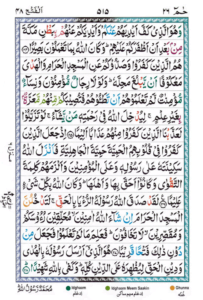 حٰمٓ ٢٦ ٥١٥ اَلْفَتْح ٤٨
وَهُوَ الَّذِىْ كَفَّ اَيْدِيَهُمْ عَنْكُمْ وَاَيْدِيَكُمْ عَنْهُمْ بِبَطْنِ مَكَّةَ
مِنْۢ بَعْدِ اَنْ اَظْفَرَكُمْ عَلَيْهِمْ ؕ وَكَانَ اللّٰهُ بِمَا تَعْمَلُوْنَ بَصِيْرًا
هُمُ الَّذِيْنَ كَفَرُوْا وَصَدُّوْكُمْ عَنِ الْمَسْجِدِ الْحَرَامِ وَالْهَدْىَ
مَعْكُوْفًا اَنْ يَّبْلُغَ مَحِلَّهٗ ؕ وَلَوْلَا رِجَالٌ مُّؤْمِنُوْنَ وَنِسَآءٌ
مُّؤْمِنٰتٌ لَّمْ تَعْلَمُوْهُمْ اَنْ تَطَـُٔوْهُمْ فَتُصِيْبَكُمْ مِّنْهُمْ مَّعَرَّةٌۢ
بِغَيْرِ عِلْمٍ ۚ لِيُدْخِلَ اللّٰهُ فِىْ رَحْمَتِهٖ مَنْ يَّشَآءُ ۚ لَوْ تَزَيَّلُوْا
لَعَذَّبْنَا الَّذِيْنَ كَفَرُوْا مِنْهُمْ عَذَابًا اَلِيْمًا اِذْ جَعَلَ الَّذِيْنَ
كَفَرُوْا فِىْ قُلُوْبِهِمُ الْحَمِيَّةَ حَمِيَّةَ الْجَاهِلِيَّةِ فَاَنْزَلَ اللّٰهُ
سَكِيْنَتَهٗ عَلٰى رَسُوْلِهٖ وَعَلَى الْمُؤْمِنِيْنَ وَاَلْزَمَهُمْ كَلِمَةَ
التَّقْوٰى وَكَانُوْۤا اَحَقَّ بِهَا وَاَهْلَهَا ؕ وَكَانَ اللّٰهُ بِكُلِّ شَىْءٍ
عَلِيْمًا لَقَدْ صَدَقَ اللّٰهُ رَسُوْلَهُ الرُّءْيَا بِالْحَقِّ ۚ لَتَدْخُلُنَّ
الْمَسْجِدَ الْحَرَامَ اِنْ شَآءَ اللّٰهُ اٰمِنِيْنَ ۙ مُحَلِّقِيْنَ رُءُوْسَكُمْ
وَمُقَصِّرِيْنَ ۙ لَا تَخَافُوْنَ ؕ فَعَلِمَ مَا لَمْ تَعْلَمُوْا فَجَعَلَ مِنْ
دُوْنِ ذٰلِكَ فَتْحًا قَرِيْبًا هُوَ الَّذِىْۤ اَرْسَلَ رَسُوْلَهٗ بِالْهُدٰى
وَدِيْنِ الْحَقِّ لِيُظْهِرَهٗ عَلَى الدِّيْنِ كُلِّهٖ ؕ وَكَفٰى بِاللّٰهِ شَهِيْدًا
مُحَمَّدٌ رَّسُوْلُ اللّٰهِ